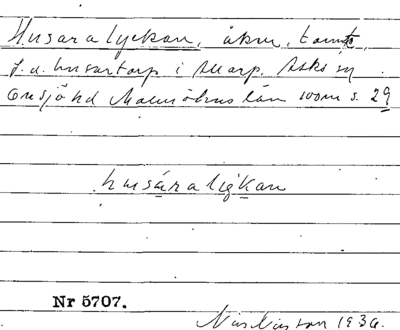 Husaralyckan, åker, tomt,
f.d. husartorp i Allarp, Asks sn
Onsjö hd Malmöhus län 100m s. 29
husáralyk̬an
Nr 5707.
Nils Nilsson 1936.